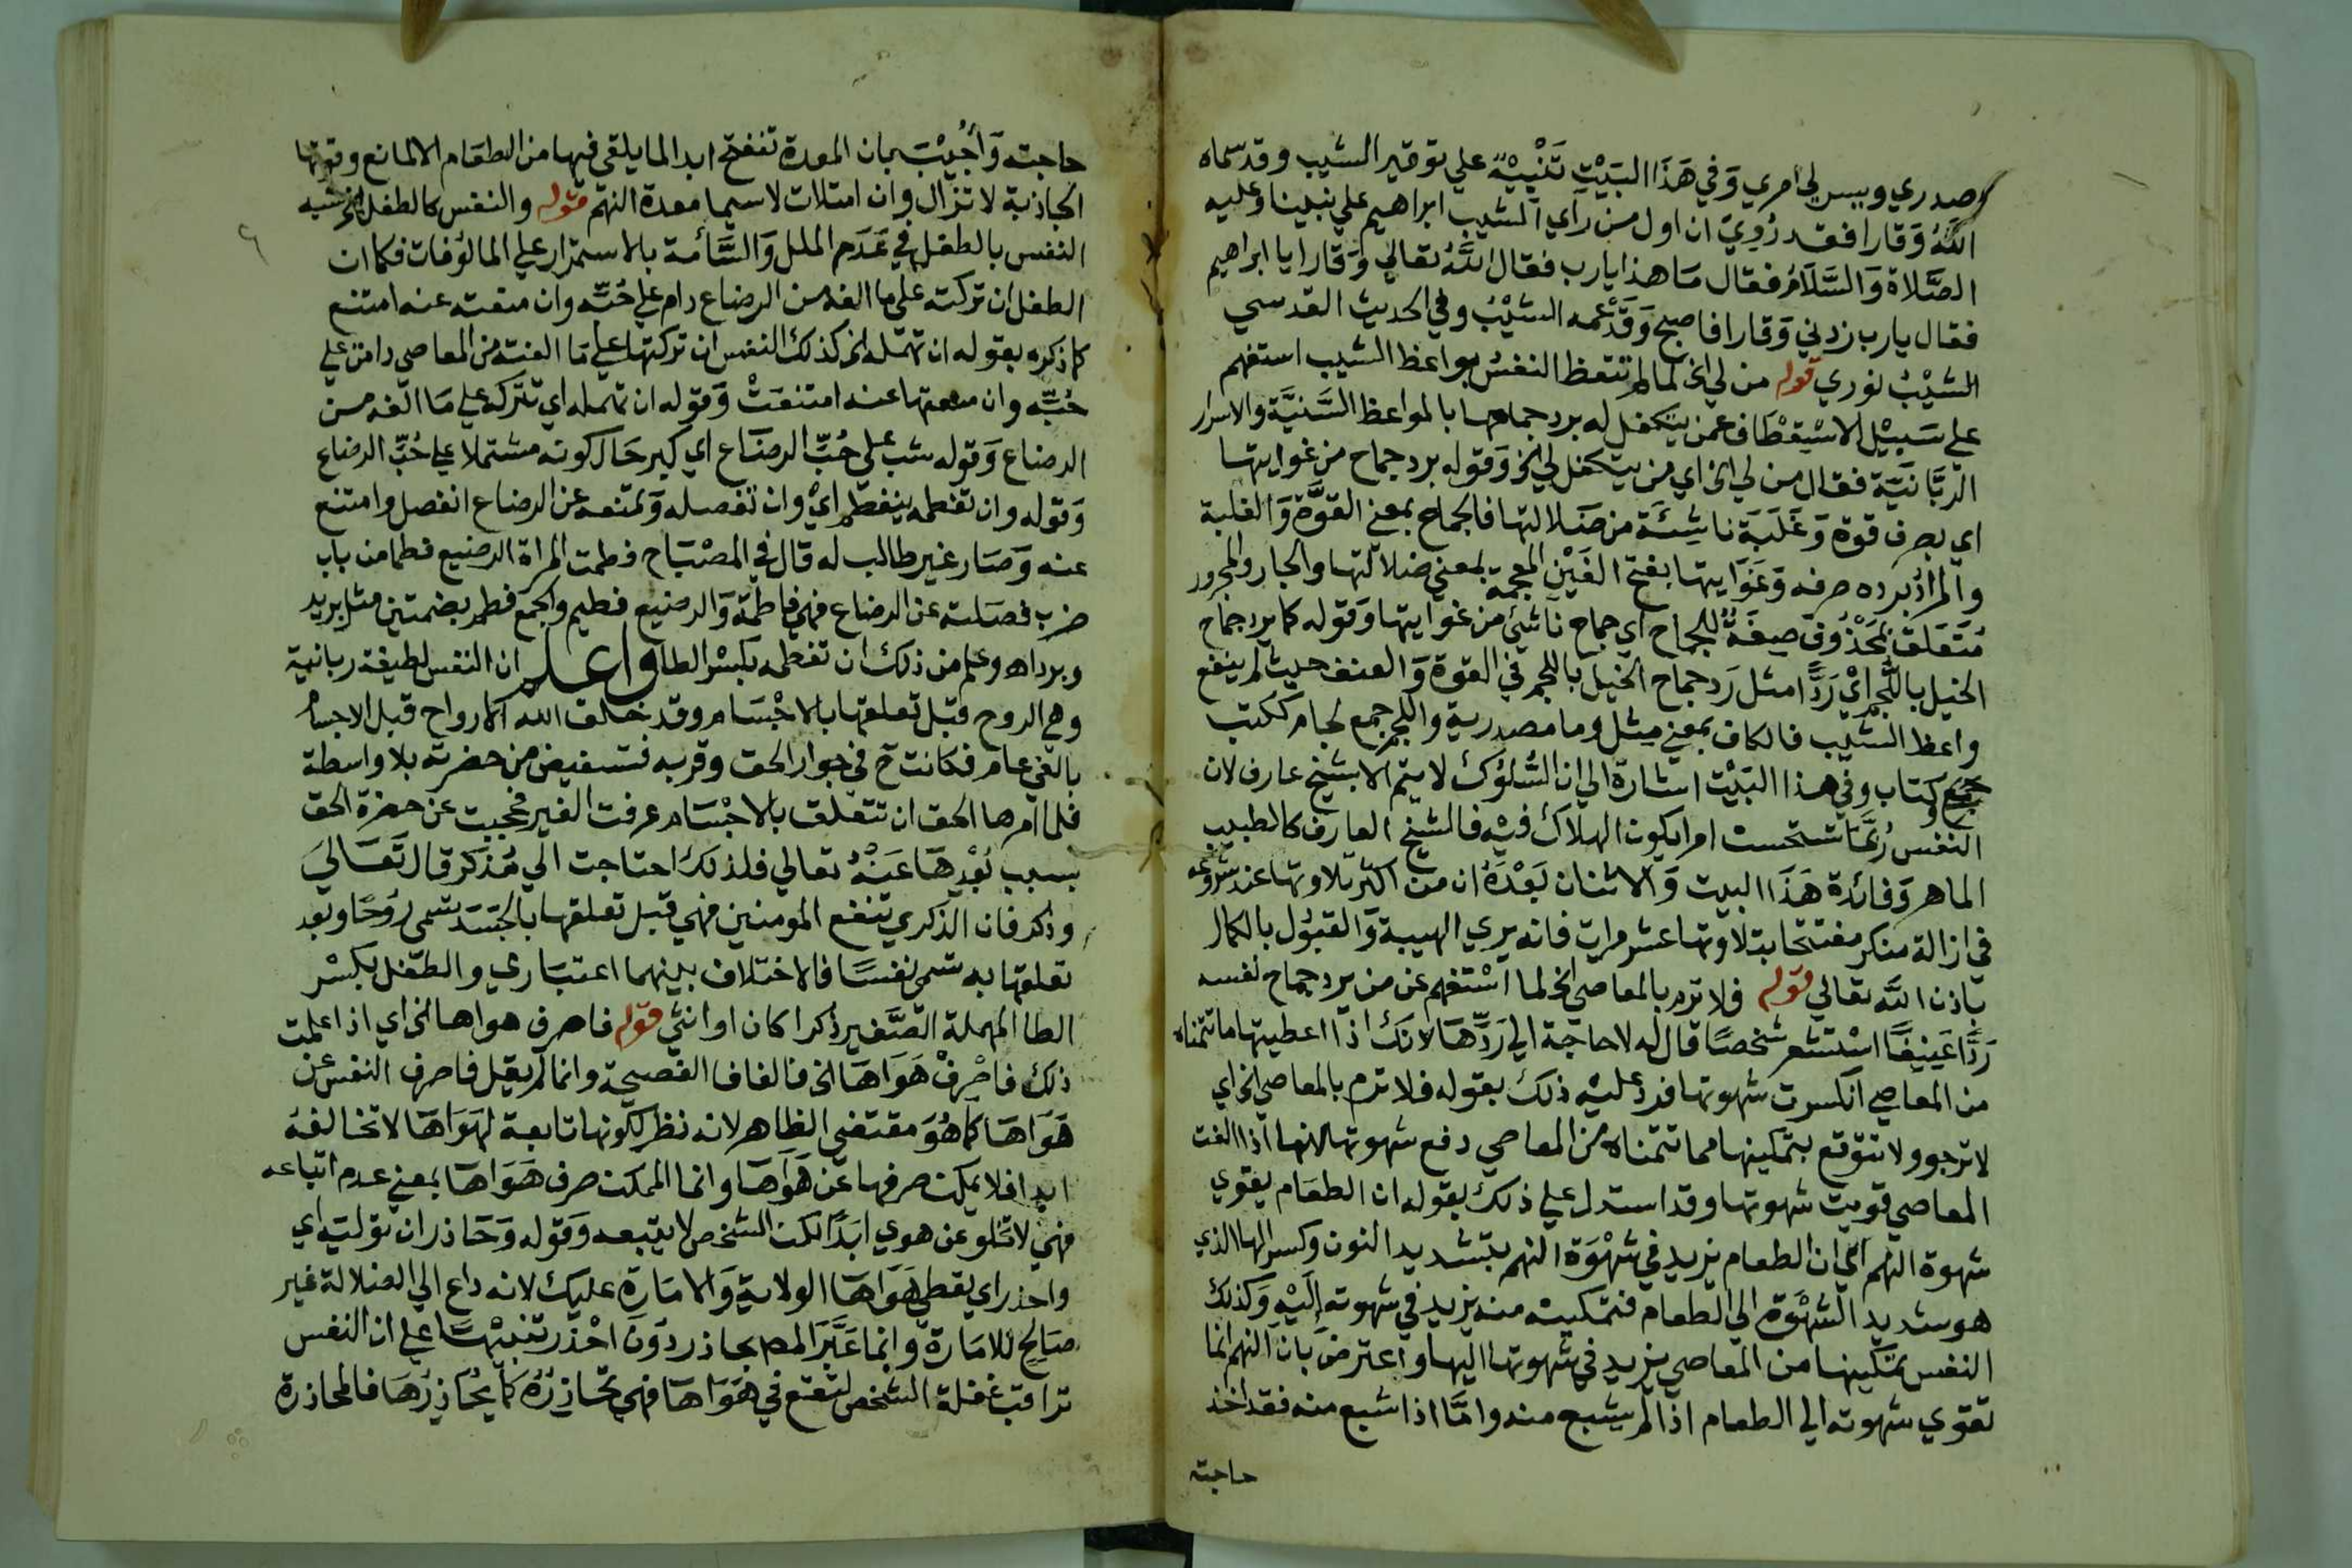 صدري ويسر لي امري وَفي هَذَا البَيْتِ تَنْبِيْهٌ علي توقير الشيب وقد سماه
اللَّهُ وَقارا فقد رُوِيَ ان اول من رَأي الشيب ابراهيم علي نبينا وعليه
الصَّلاة وَالسَّلَامُ فقال مَا هذا يارب فقال اللَّهُ تعالي وَقارا يا ابراهيم
فقال يارب زدني وَقارا فاصبح وَقَدْ عمه الشيْبُ وفي الحديث القدسي
الشيْبُ نوري قوله من لي الخ لما لم تتعظ النفسُ بواعظ الشيب استفهم
علي سَبيْل الاسْتِعْطاف عمن يتكفل له برد جماحها بالمواعظ السَّنيَّة والاسرار
الرَّبَّانيَّة فقال من لي الخ اي من يتكفل لي الخ وَقوله برد جماح من غوايتها
اي بصرف قوة وَغَلَبَة ناشِئَة من ضَلالتها فالجماح بمعني القوَّة وَالغلبة
والمراد برده صرفه وَغَوَايتها بفتح الغَيْن المعجمة بمعني ضلالتها والجار والمجرور
مُتَعَلق بمَحْذُوف صِفَةٌ للجماح اي جماح نَاشئ من غوايتها وَقوله كما يرد جماح
الخيل باللُّجم ايْ رَدًّا مثل رَد جماح الخيل باللجم في القوة وَالعنف حيث لم ينفع
واعظ الشَّيب فالكاف بمعني مثل وما مصدرية واللجم جمع لجام ككتب
جمع كتاب وفي هذا البَيْت اشارة الي ان السُّلوُك لا يتم الا بشيخ عارف لان
النفس رُبَّمَا تستحسن امرا يكون الهلاك فيْه فالشيخ العارف كالطبيب
الماهر وَفائدة هَذَا البيت وَالاثنان بَعْدَهُ ان من اكثر تلاوتها عند شروعه
في ازالة منكر مفتتحا بتلاوتها عشر مرات فانه يري الهيبة وَالقبُول بالكمال
باذن اللَّه تعالي قوله فلا ترم بالمعاصي الخ لما اسْتفهم عن من يرد جماح نفسه
رَدًّا عَنِيفًا اسْتشعر شخصًا قال له لا حاجة الي رَدِّهَا لانَكَ اذا اعطيتها ما تتمناه
من المعاصي انكسرت شهوتها فرد عليْه ذلك بقوله فلا ترم بالمعاصي الخ اي
لا ترجو ولا تتوقع بتمكينها مما تتمناه من المعاصي دفع شهوتها لانها اذا الفت
المعاصي قويت شهوتها وقد استدل علي ذلك بقوله ان الطعَام يقوي
شهوة النهم اي ان الطعام يزيد في شَهْوَة النهم بتشديد النون وكسر الها الذي
هو شديد الشهْوَة الي الطعام فتمكينه منه يزيد في شهوته إلَيْهِ وَكذلك
النفس تمكينها من المعاصي يزيد في شهوتها اليها واعترضَ بانَ النهم انما
تقوي شهوته الي الطعام اذا لم يشبع منه وامَّا اذا شبع منه فقد اخذ
حاجته
٦
حاجته وَأُجِيْبَ بان المعدة تنفتح ابدا لما يلقي فيها من الطعَام الا لمانع وقوتها
الجاذبة لا تزال وان امتلات لا سيما معدة النهم قوله والنفس كالطفل الخ شبه
النفس بالطفل في عَدَم الملل وَالسَّأمة بالاستمرار علي المالوفات فكما ان
الطفل ان تركته علي ما الفه من الرضاع دام علي حُبِّه وان منعته عنه امتنع
كما ذكره بقوله ان تهمله الخ كذلك النفس ان تركتها علي مَا الفته من المعاصي دامت علي
حُبِّه وان منعتها عنه امتنعَتْ وَقوله ان تهمله اي تتركه علي مَا الفه من
الرضاع وَقوله شب علي حُبِّ الرضَاع اي كبر حَال كونه مشتملا علي حُبِّ الرضاع
وَقوله وان تفطمه ينفطم ايْ وان تفصله وَتمنعه عن الرضاع انفصل وامتنع
عنه وَصَار غير طالب له قال في المصْبَاح فطمت المراة الرضيع فطما من باب
ضرب فصَلته عن الرضاع فهي فاطمَة وَالرضيع فطيم والجمع فطم بضمتين مثل بريد
وبرد اهـ وعلم من ذلك ان تفطمه بكسْر الطا واعلم ان النفس لطيفة ربانية
وهي الروح قبْل تعلقها بالاجْسَام وقد خلق الله الارواح قبل الاجسام
بالفي عام فكانت ح في جوار الحق وقربه فتستفيض من حضرته بلا واسطة
فلما امرها الحق ان تتعلق بالاجْسَام عرفت الغير فحجبت عن حضرة الحق
بسبب بُعْدِهَا عَنْهُ تعالي فلذلك احتاجت الي مُذكر قال تَعَالَي
وذكر فان الذكري تنفع المومنين فهي قبل تعلقها بالجَسَد تسمي رُوحًا وَبعد
تعلقها به تسمي نفسًا فالاختلاف بينهما اعتبَاري والطفل بكسْر
الطا المهملة الصَّغير ذكرا كان او انثي قوله فاصرف هواها الخ اي اذا علمت
ذلك فاصْرفْ هَوَاهَا الخ فالفاء الفصيحة وانما لم يقل فاصرف النفس عن
هَوَاهَا كَما هُوَ مقتضي الظاهر لانه نظر لكونها تابعة لهَوَاهَا لا تخالفهُ
ابدا فلا يمكن صرفها عَن هَوَاهَا وانما الممكن صرف هَوَاهَا بمعني عدم اتباعه
فهي لا تخلو عن هوي ابَدًا لكن الشخص لا يتبعه وَقوله وَحَاذر ان توليَه اي
واحذر اي يعطي هَوَاهَا الولاية وَالامَارة عليك لانه داع الي الضلالة غير
صَالح للامَارة وانما عَبَّرَ المص بحاذر دوَن احْذر تنبيْهًا علي ان النفس
تراقب غفلة الشخص لتقع في هَوَاهَا فهي تحَاذِرُهُ كمَا يُحَاذِرُهَا فالمحاذرة